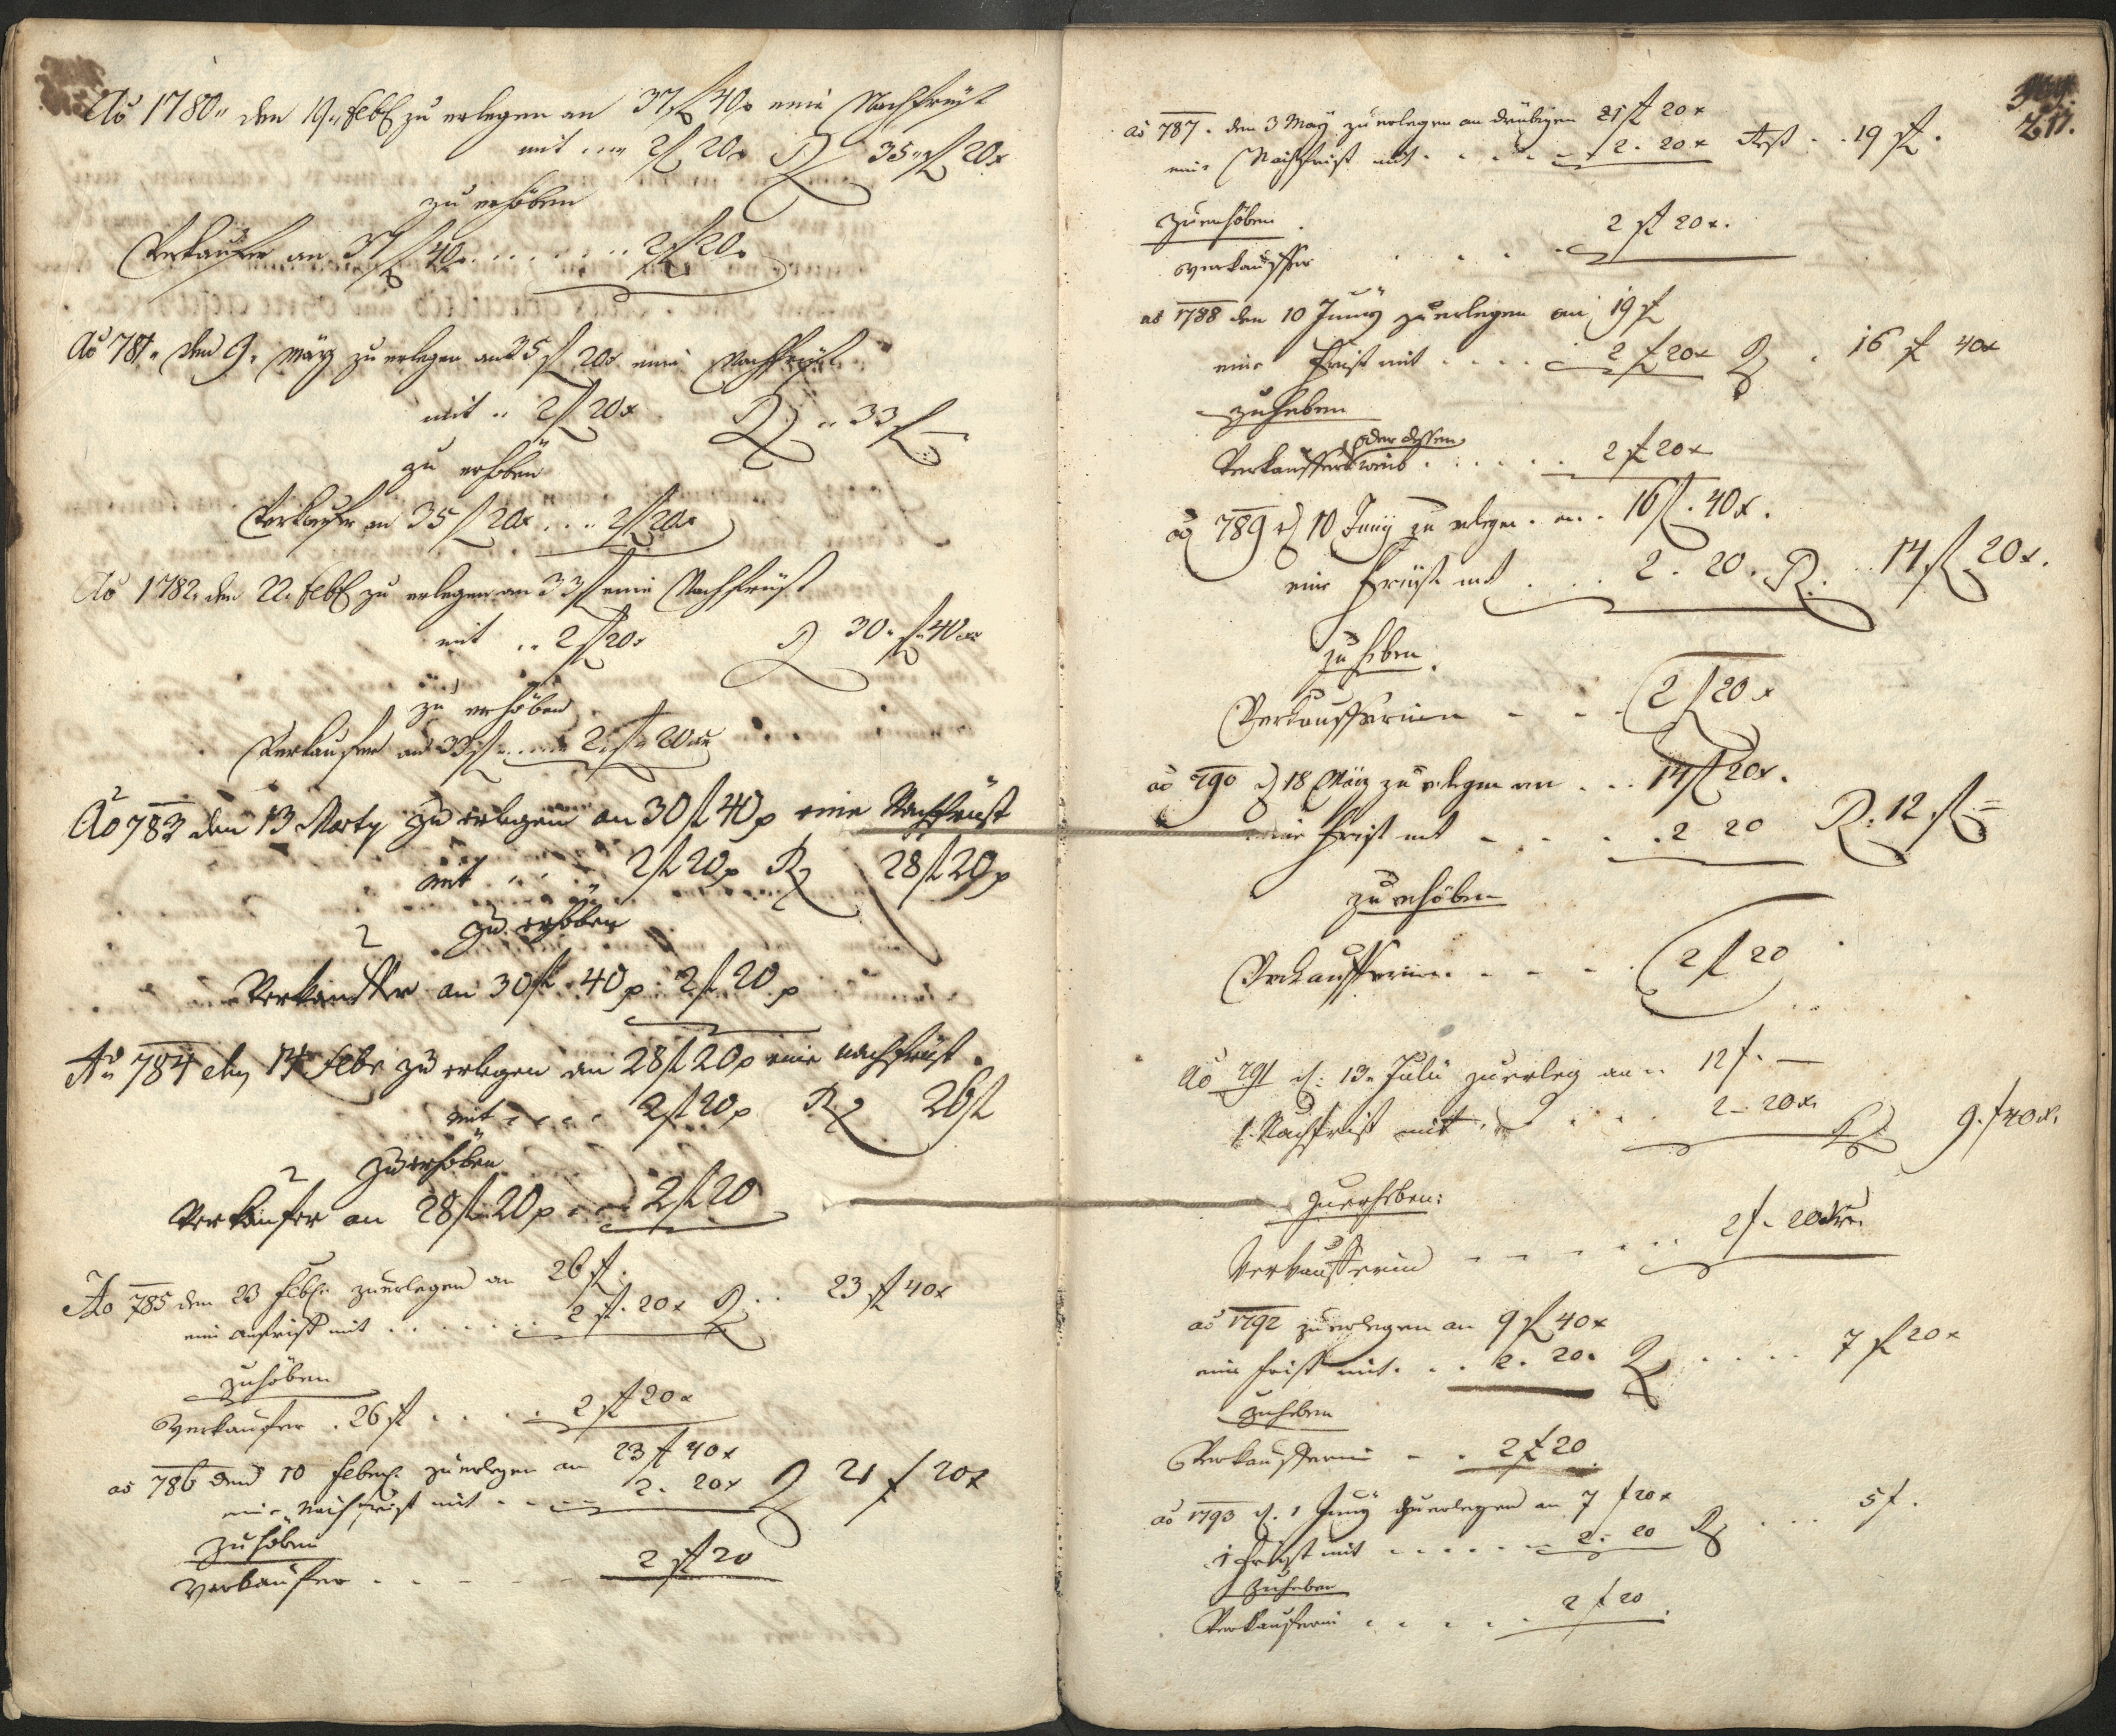 Ao 1780 den 19 Feb zu erlegen an 37 fl 40 x eine Nachfrüst
mit 2 fl 20 x R 35 fl 20 x
zu erhöben
Verkaufer an 37 fl 40 x 2 fl 20 x
Ao 781 den 9 März zu erlegen an 35 fl 20 x eine Nachfrüst
mit 2 fl 20 x R 33 fl —
zu erhöben
Verkaufer an 35 fl 20 x 2 fl 20 x
Ao 1782 den 22 Feb zu erlegen an 33 fl eine Nachfrüst
mit 2 fl 20 x R 30 fl 40 x
zu erhöben
Verkaufer an 33 fl 2 fl 20 x
Ao 783 den 13 Marty zu erlegen an 30 fl 40 x eine Nachfrüst
mit 2 fl 20 x R 28 fl 20 x
zu erhöben
Verkauffer an 30 fl 40 x 2 fl 20 x
Ao 784 den 14 Febr zu erlegen an 28 fl 20 x eine nachfrüst
mit 2 fl 20 x R 26 fl
zu erhöben
Verkäufer an 28 fl 20 x 2 fl 20
Ao 785 den 23 Feb zu erlegen an 26 fl
ein mit 2 fl 20 x R 23 fl 40 x
zuhöben
Verkaufer 26 fl 2 fl 20 x
ao 786 den 10 zu erlegen an 23 fl 40 x
eine Nachfrist mit 2. 20 x R 21 f 20 x
zuhöben
Verkaufer 2 fl 20
211.
ao 787. den 3 May zu erlegen an 21 fl 20 x
eine Nachfrist mit 2. 20 x Rest 19 fl.
zuerhöben
Verkauffer 2 fl 20 x.
ao 1788 den 10 Juny zu erlegen an 19 f
eine Frist mit 2 f 20 x R 16 f 40 x
zuheben
oder dessen
Verkauffer weib 2 f 20 x
ao 789 d 10 Juny zu erlegen an 16 fl. 40 x.
eine Früst mit 2. 20. R. 14 fl 20 x.
zu heben.
Verkaufferinn 2 f 20 x
ao 790 d 18 März zu erlegen an 14 fl 20 x.
eine Frist mit 2 20 R. 12 fl =
zu erhöben
Verkaufferinn 2 f 20
Ao 791 d: 13 Julii zuerleg an 12 f. —
1. Nachfrist mit 2 - 20 x. R 9. f 40 x.
zuerheben:
Verkaufferin 2 f. 20 xr.
ao 1792 zu erlegen an 9 fl 40 x
eine frist mit 2. 20 R 7 fl 20 x
zuheben
Verkaufferin 2 f 20
ao 1793 d. 1 Juny zuerlegen an 7 f 20 x
1 frist mit 2. 20 R 5 f.
zuheben
Verkauferin 2 f 20